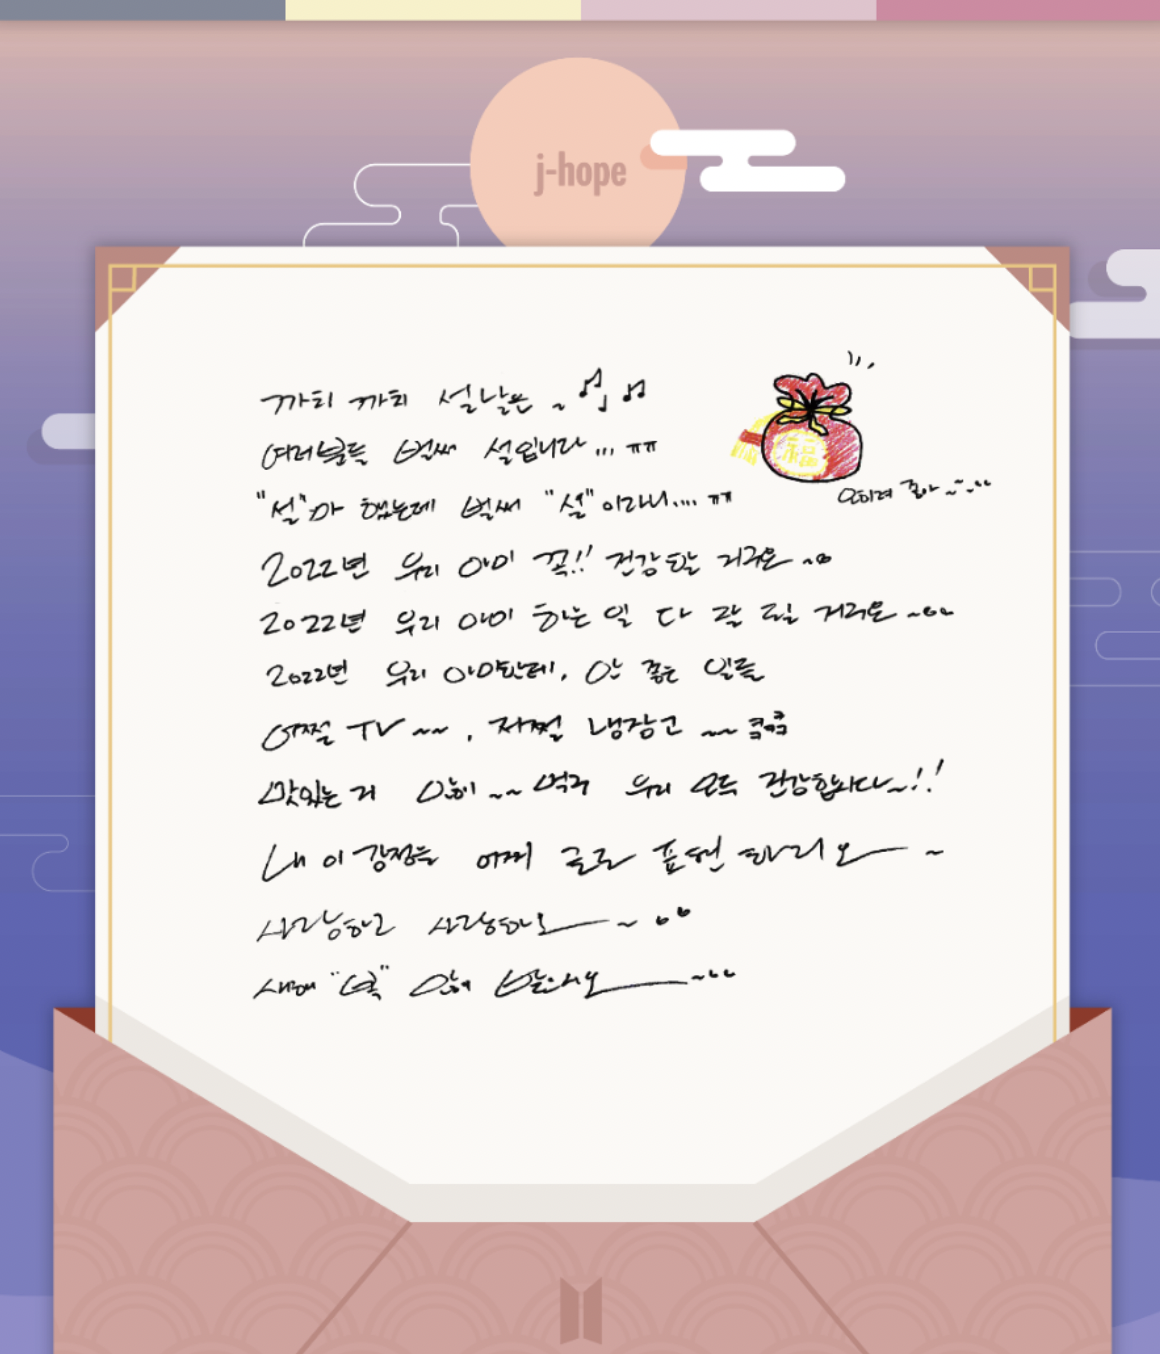 j-hope
까치 까치 설날은 ~
여러분들 벌써 설입니다... ㅠㅠ
福
"설"마 했는데 벌써 "설"이라니.... ㅠㅠ
오히려 좋아 ~~
2022년 우리 아미 꼭!! 건강할 거구요 ~
2022년 우리 아미 하는 일 다 잘 될 거구요 ~
2022년 우리 아미한테, 안 좋은 일들
어쩔 TV ~~, 저쩔 냉장고 ~~ 쿄쿄쿄
맛있는 거 많이 ~~ 먹구 우리 모두 건강합시다~!!
내 이 감정을 어찌 글로 표현 하리오 ~
사랑하고 사랑하오 ~
새해 "복" 많이 받으시오 ~